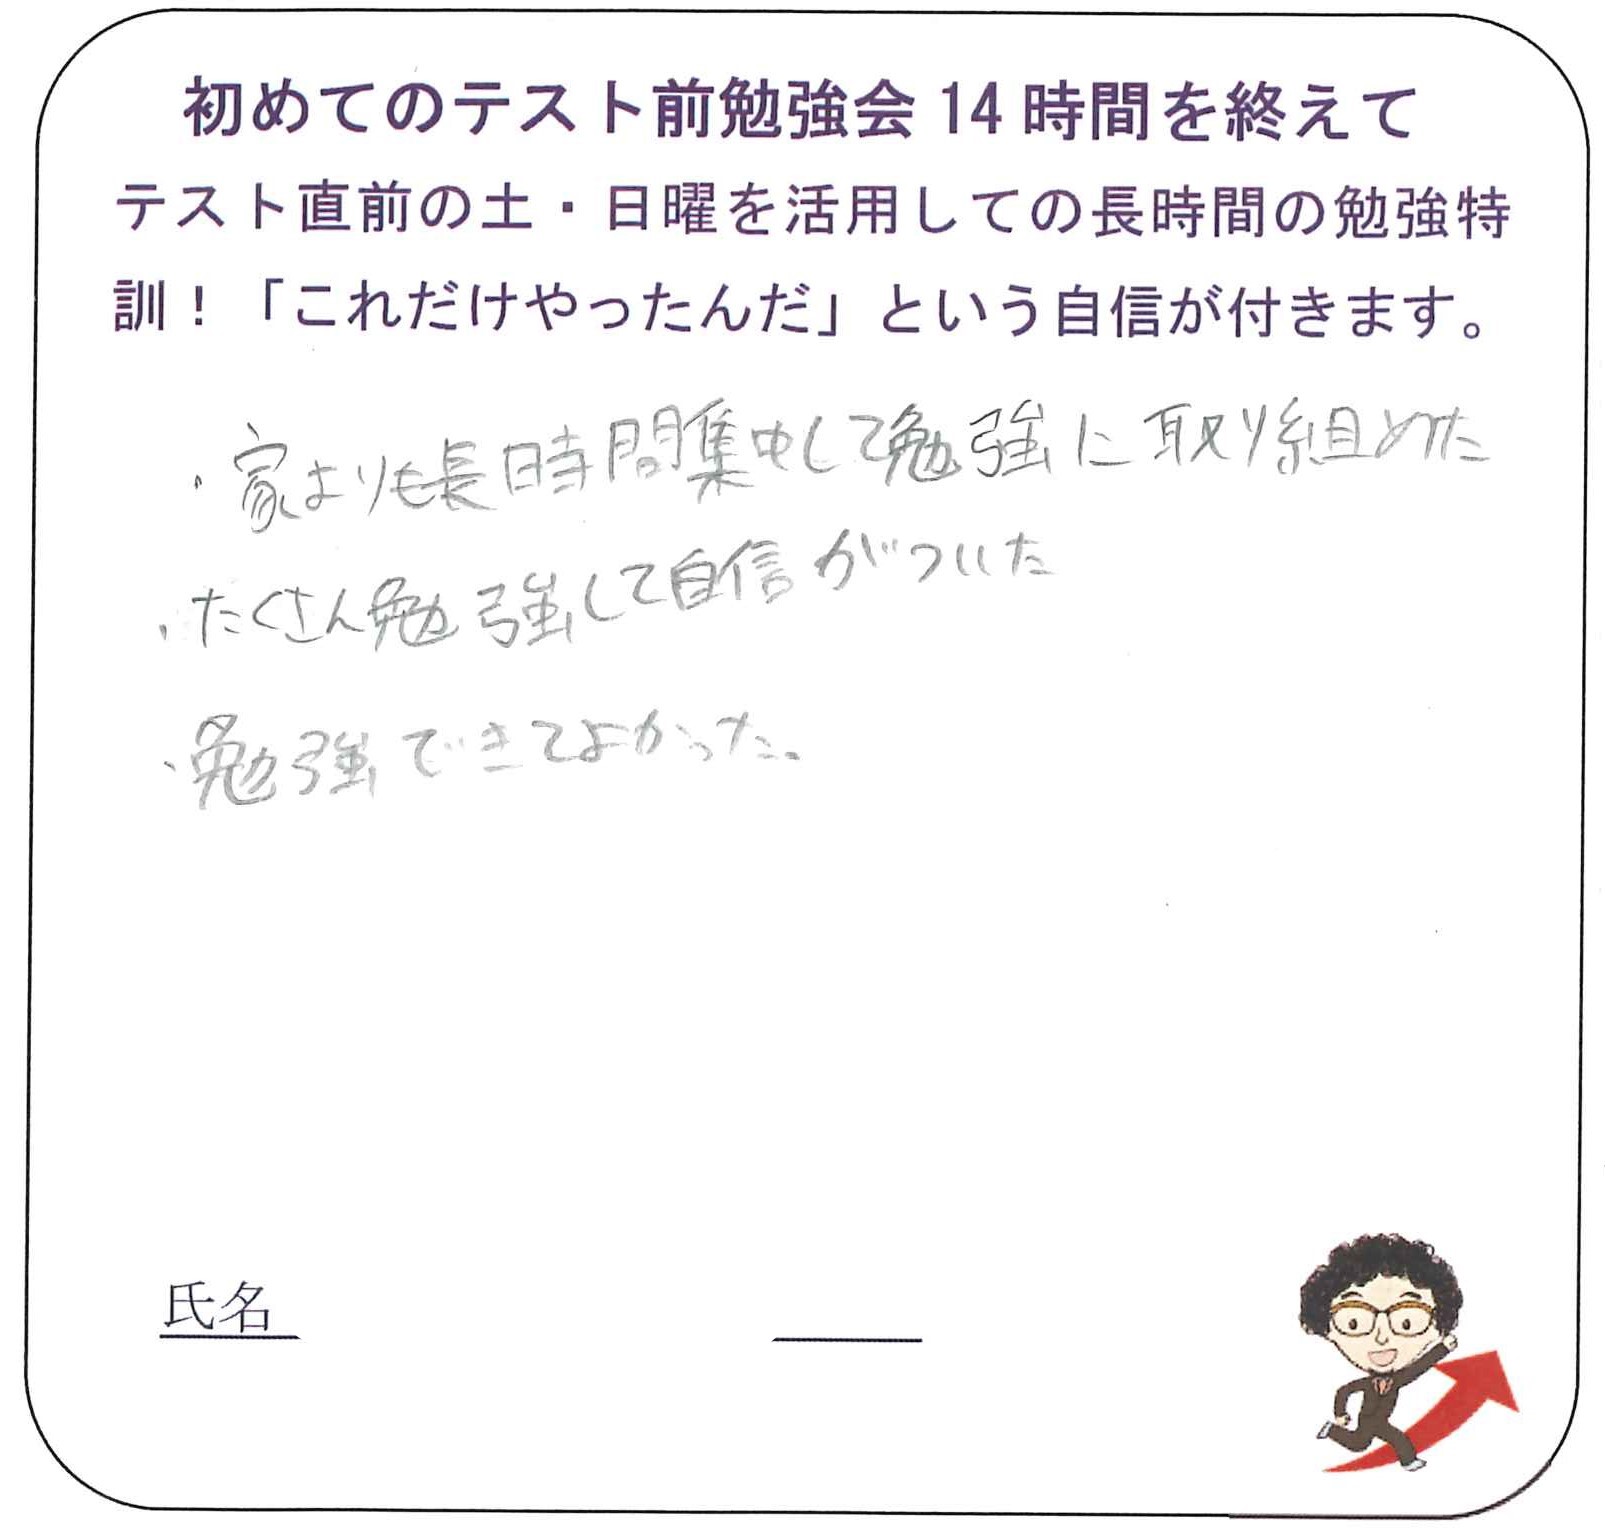 初めてのテスト前勉強会14時間を終えて
テスト直前の土・日曜を活用しての長時間の勉強特
訓！「これだけやったんだ」という自信が付きます。
・家よりも長時間集中して勉強に取り組めた
・たくさん勉強して自信がついた
・勉強できてよかった。
氏名